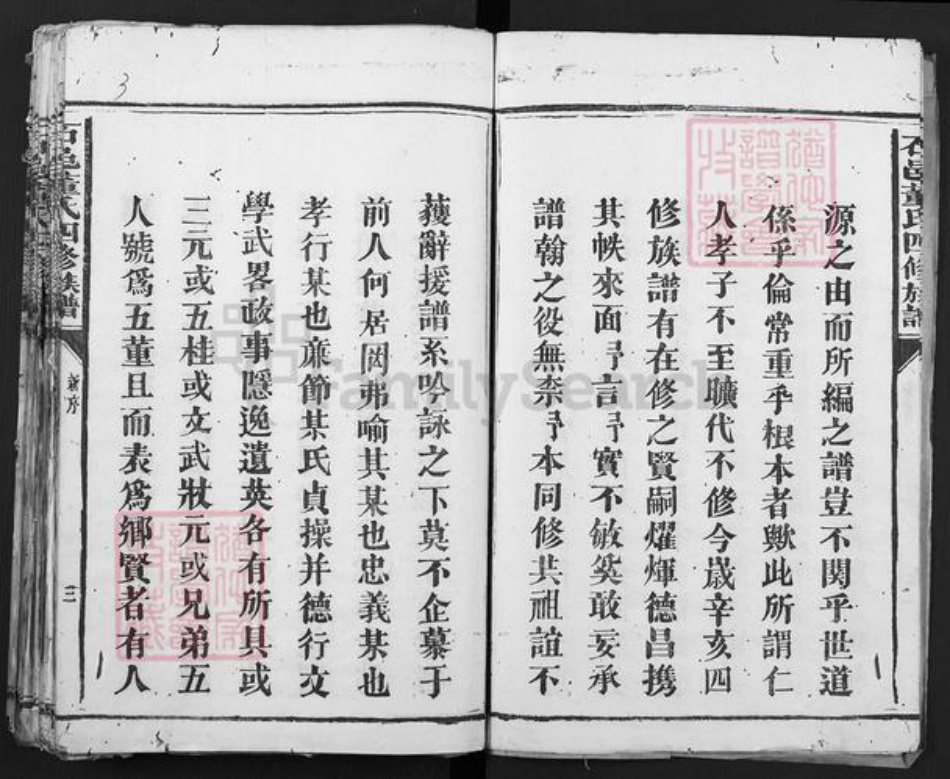 石邑董氏四修族譜
源之由而所編之譜豈不関乎世道
係乎倫常重乎根本者歟此所謂仁
人孝子不至曠代不修今歲辛亥四
修族譜有在修之賢嗣燿煇德昌携
其帙來面予言予實不敏奚敢妄承
譜翰之役無奈予本同修共祖誼不
獲辭援譜系吟詠之下莫不企慕于
前人何居罔弗喻其某也忠義某也
孝行某也亷節某氏貞操并德行文
學武畧政事隱逸遺英各有所具或
三元或五桂或文武狀元或兄弟五
人號爲五董且而表爲鄉賢者有人
石邑董氏四修族譜
新序
三
3
FamilySearch